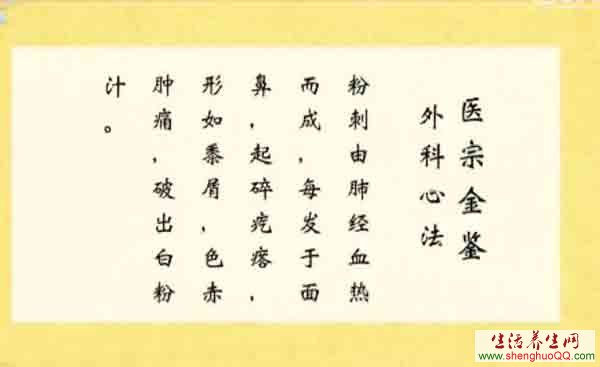 医宗金鉴
外科心法
粉刺由肺经血热
而成，每发于面
鼻，起碎疙瘩，
形如黍屑，色赤
肿痛，破出白粉
汁。
生活养生网
www.shenghuoQQ.com